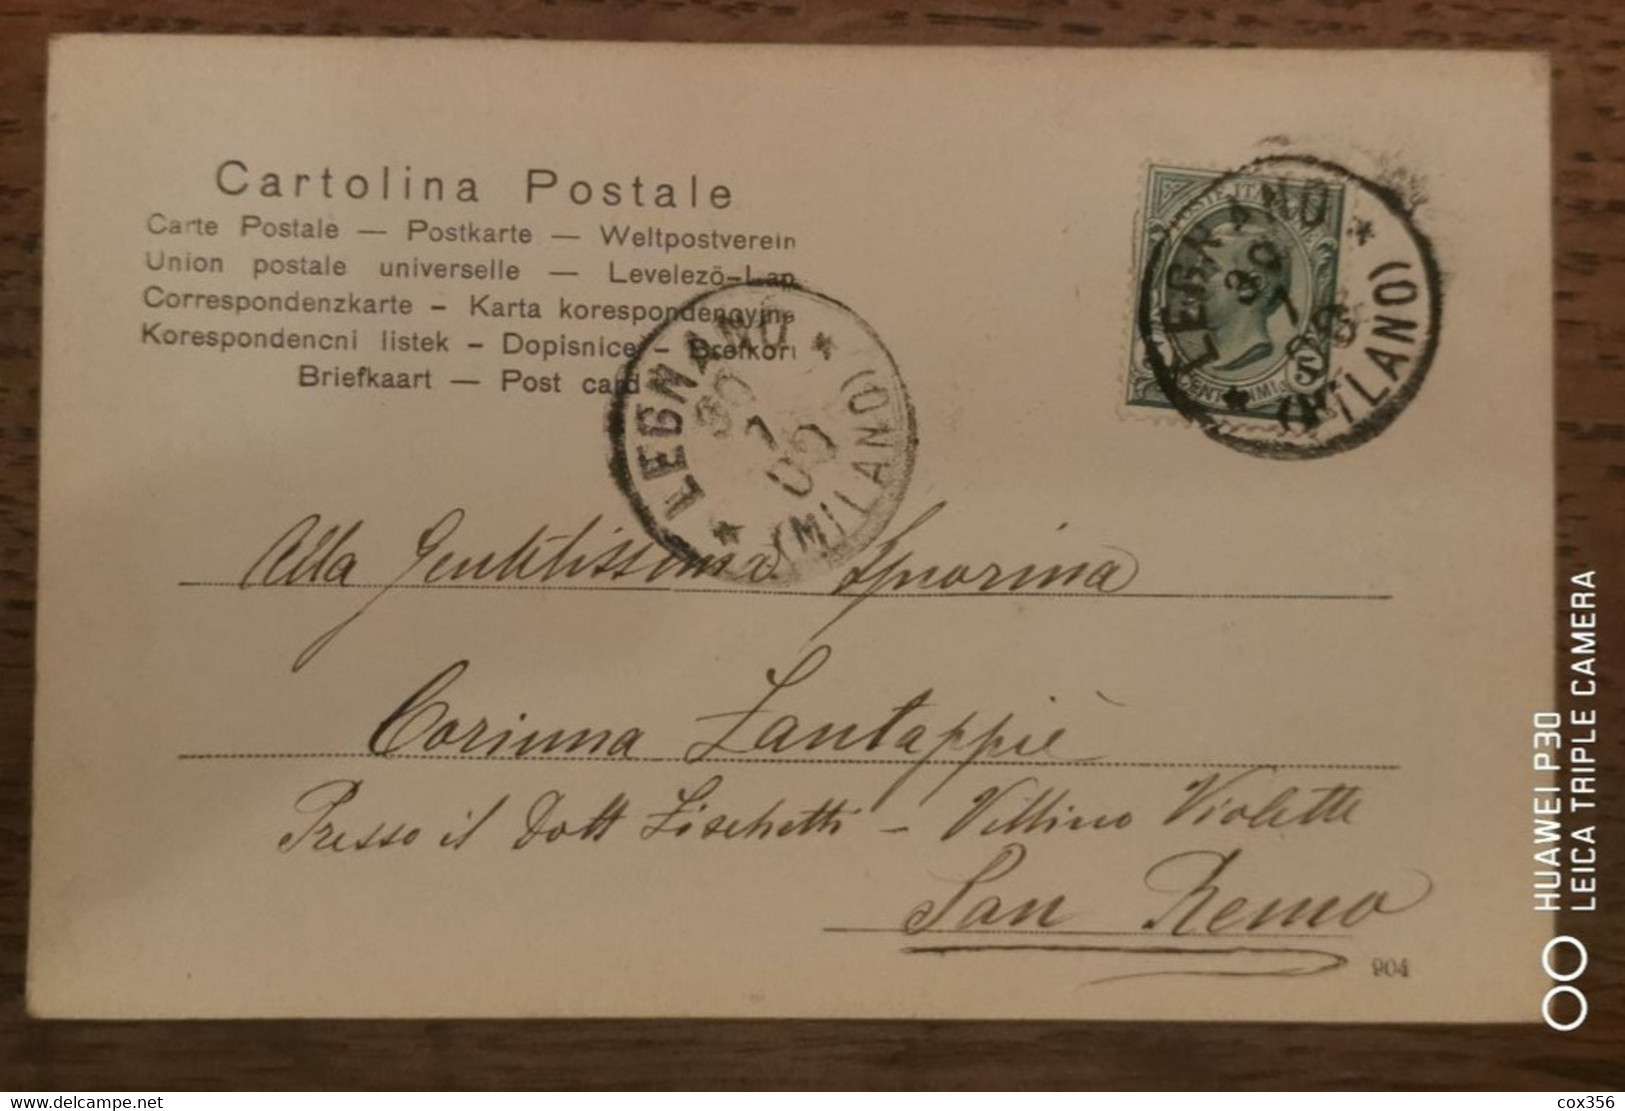 Cartolina Postale
Carte Postale — Postkarte — Weltpostverein
Union postale universelle — Levelezö-Lap
Correspondenzkarte - Karta korespondencyjna
Korespondencni listek - Dopisnice - Brefkort
Briefkaart — Post card
POSTE ITAL
CENTESIMI 5
LEGNANO
30
7
06
(MILANO)
LEGNANO
30
7
06
(MILANO)
Alla Gentilissima Signorina
Corinna Lantappiè
Presso il Dott Lischetti - Villino Violette
San Remo
904
HUAWEI P30
LEICA TRIPLE CAMERA
delcampe.net
cox356